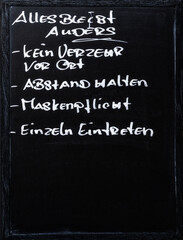 Alles bleibt
anders
- kein Verzehr
vor Ort
- Abstand halten
- Maskenpflicht
- Einzeln Eintreten